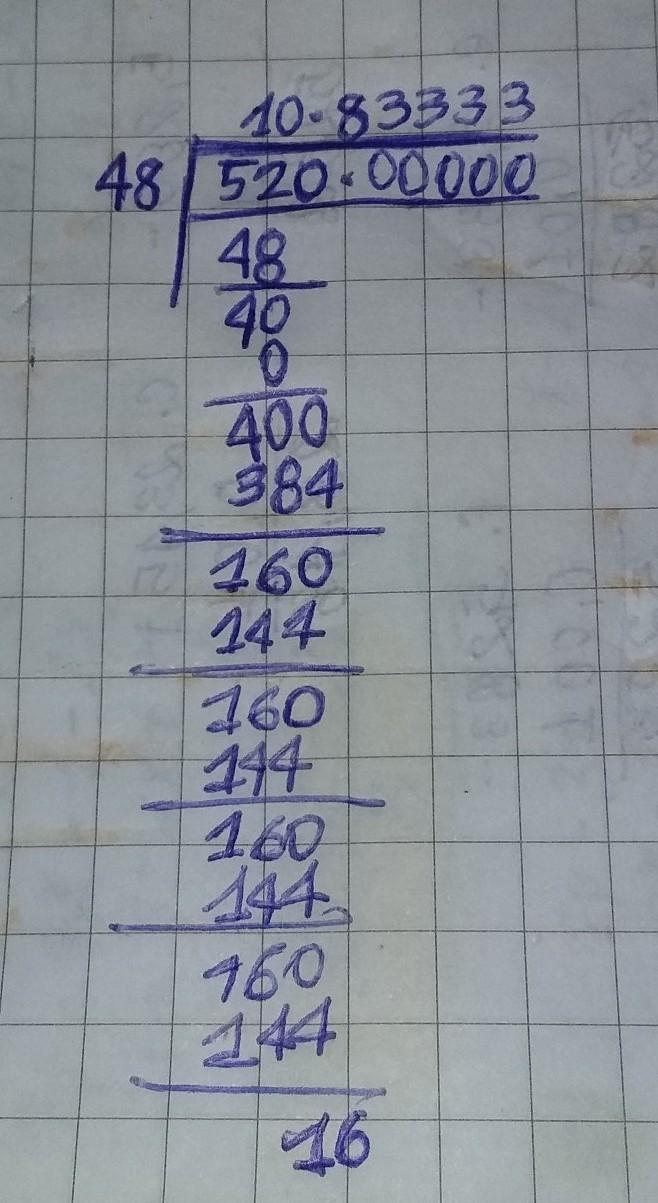 10.83333
48 520.00000
48
40
0
400
384
160
144
160
144
160
144
160
144
16